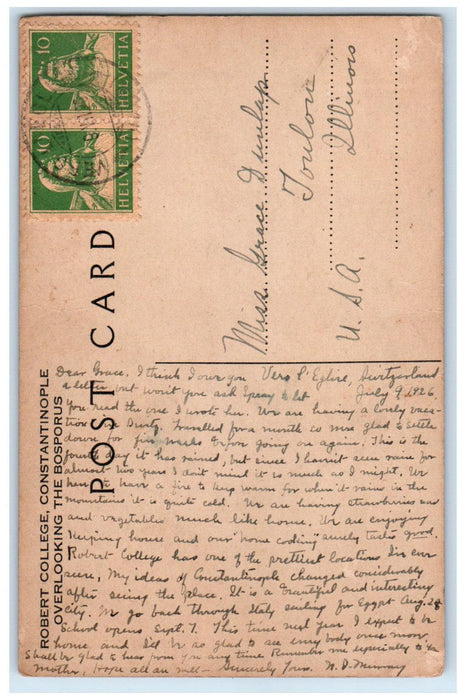 10
HELVETIA
10
HELVETIA
VERS
ROBERT COLLEGE, CONSTANTINOPLE
OVERLOOKING THE BOSPORUS
POST CARD
Miss. Grace Dunlap
Toulon
Illinois
U. S. A.
Dear Grace, I think I owe you Vers l'Eglise, Switzerland
a letter but won't you ask to let July 9, 1926.
you read the one I wrote her. We are having a lovely vaca-
tion in Switz. Travelled for a month so was glad to settle
down for five weeks before going on again. This is the
fourth day it has rained, but since I haven't seen rain for
almost two years I don't mind it as much as I might. We
have to have a fire to keep warm for when it rains in the
mountains it is quite cold. We are having strawberries now
and vegetables much like home. We are enjoying
keeping house and our home cooking surely tastes good.
Robert College has one of the prettiest locations I've ever
seen. My ideas of Constantinople changed considerably
after seeing the place. It is a beautiful and interesting
city. We go back through Italy sailing for Egypt Aug. 28
School opens Sept. 7. This time next year I expect to be
home and I'll be so glad to see everybody once more.
Shall be glad to hear from you any time. Remember me especially to your
mother, Hope all are well — Sincerely Yours. N. D. Murray